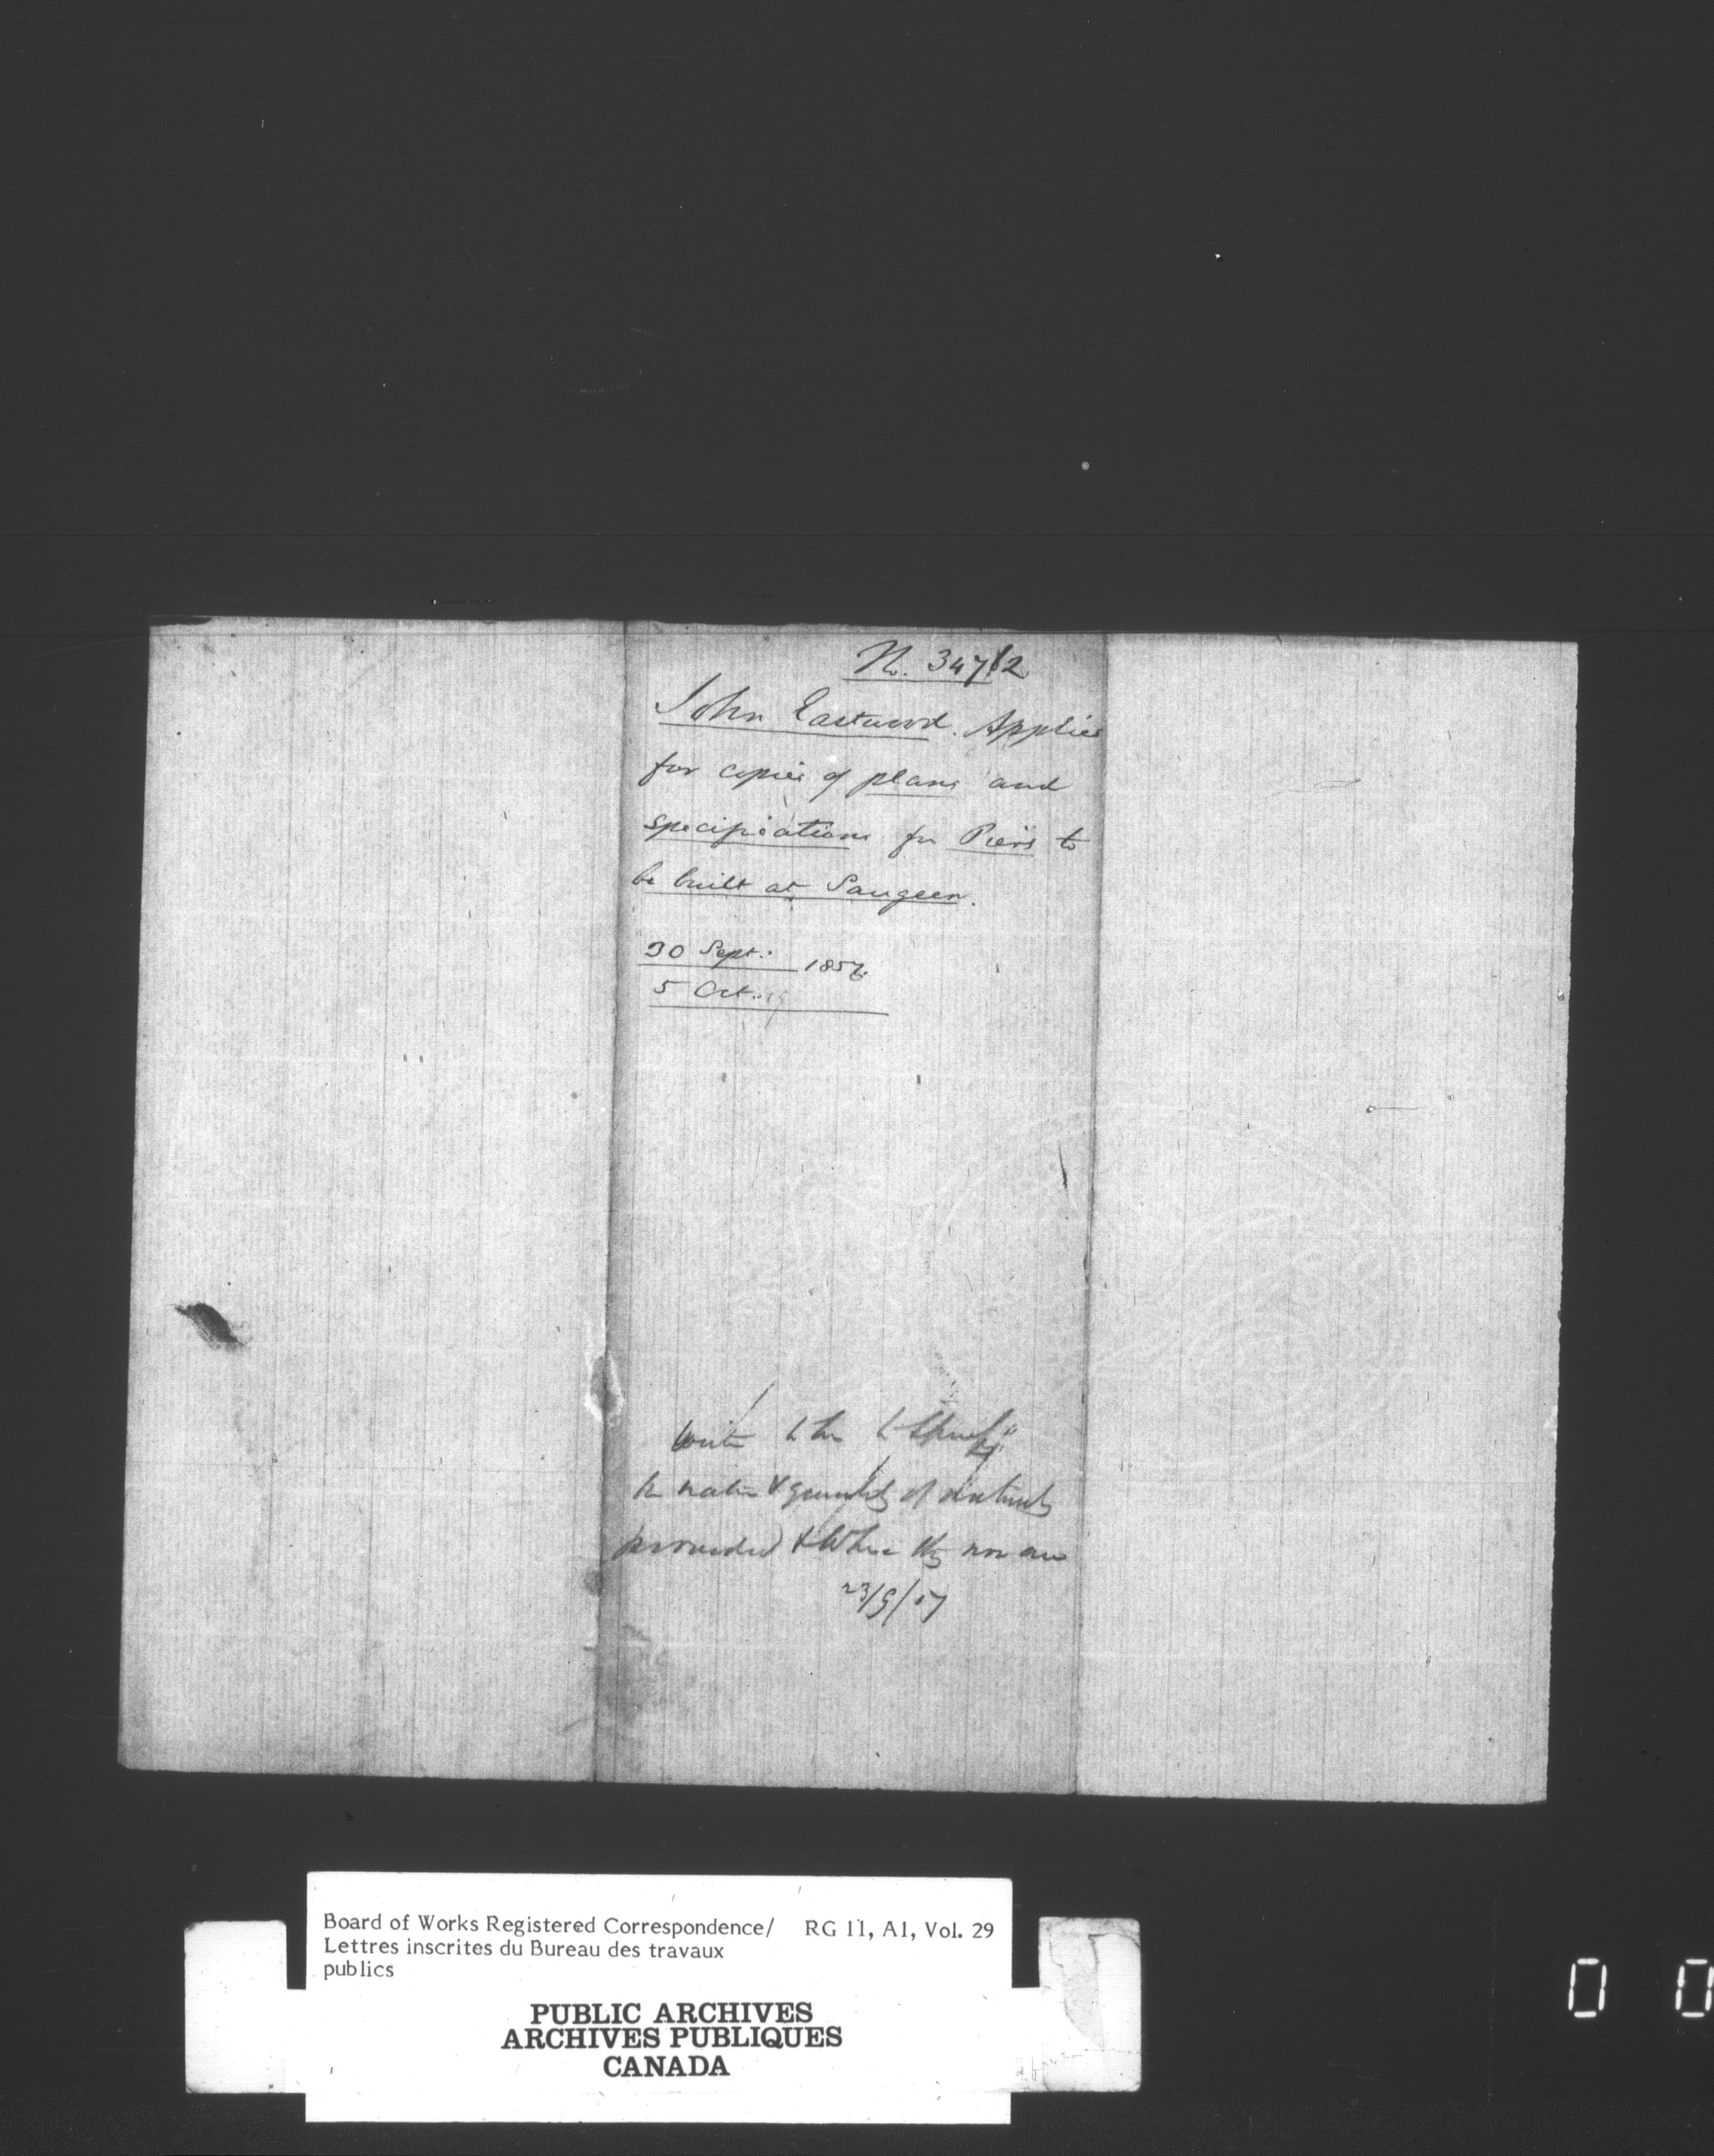 N. 34712
John Eastwood. Applies
for copies of plans and
specifications for Piers to
be built at Saugeen.
30 Sept. 1857.
5 Oct.
write
& quantity of
provided & where they now are
23/9/57
Board of Works Registered Correspondence/ RG 11, A1, Vol. 29
Lettres inscrites du Bureau des travaux
publics
PUBLIC ARCHIVES
ARCHIVES PUBLIQUES
CANADA
0 0